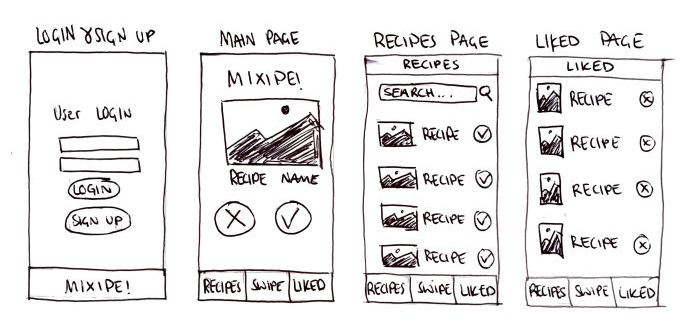 LOGIN & SIGN UP
User LOGIN
LOGIN
SIGN UP
MIXIPE!
MAIN PAGE
MIXIPE!
RECIPE NAME
RECIPES SWIPE LIKED
RECIPES PAGE
RECIPES
SEARCH...
RECIPE
RECIPE
RECIPE
RECIPE
RECIPES SWIPE LIKED
LIKED PAGE
LIKED
RECIPE
RECIPE
RECIPE
RECIPE
RECIPES SWIPE LIKED